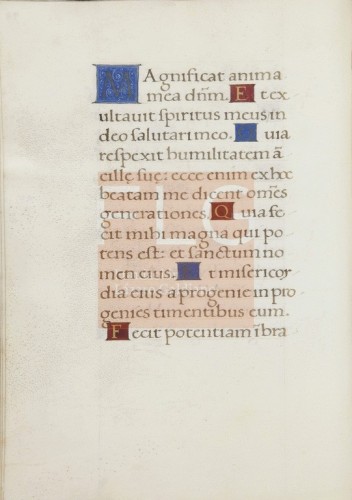 Magnificat anima
mea dñm. Et ex
ultavit spiritus meus in
deo salutari meo. Quia
respexit humilitatem ā
cille sue: ecce enim ex hoc
beatam me dicent om̄es
generationes. Quia fe
cit mihi magna qui po
tens est: et sanctum no
men eius. Et misericor
dia eius a progenie in pro
genies timentibus eum.
Fecit potentiam ī bra
FLC